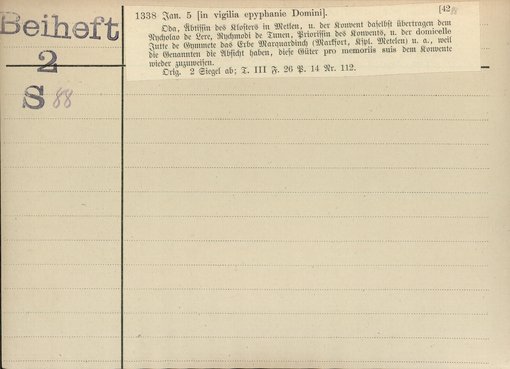 Beiheft
2
S 88
1338 Jan. 5 [in vigilia epyphanie Domini]. [42
Oda, Äbtissin des Klosters in Metlen, u. der Konvent daselbst übertragen dem
Nycholao de Lere, Rychmodi de Tunen, Priorissin des Konvents, u. der domicelle
Jutte de Gymmete das Erbe Marquardinch (Markfort, Kspl. Metelen) u. a., weil
die Genannten die Absicht haben, diese Güter pro memoriis suis dem Konvente
wieder zuzuweisen.
Orig. 2 Siegel ab; T. III F. 26 P. 14 Nr. 112.